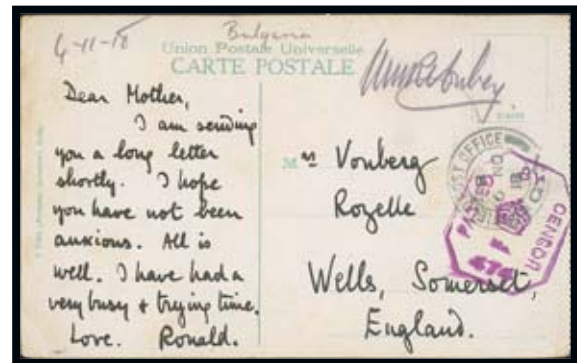 4-11-18
Bulgaria
Union Postale Universelle
CARTE POSTALE
Dear Mother,
I am sending
you a long letter
shortly. I hope
you have not been
anxious. All is
well. I have had a
very busy & trying time.
Love. Ronald.
Mrs Vonberg
Rozelle
Wells, Somerset,
England.
POST OFFICE
NO
18
PASSED BY
CENSOR